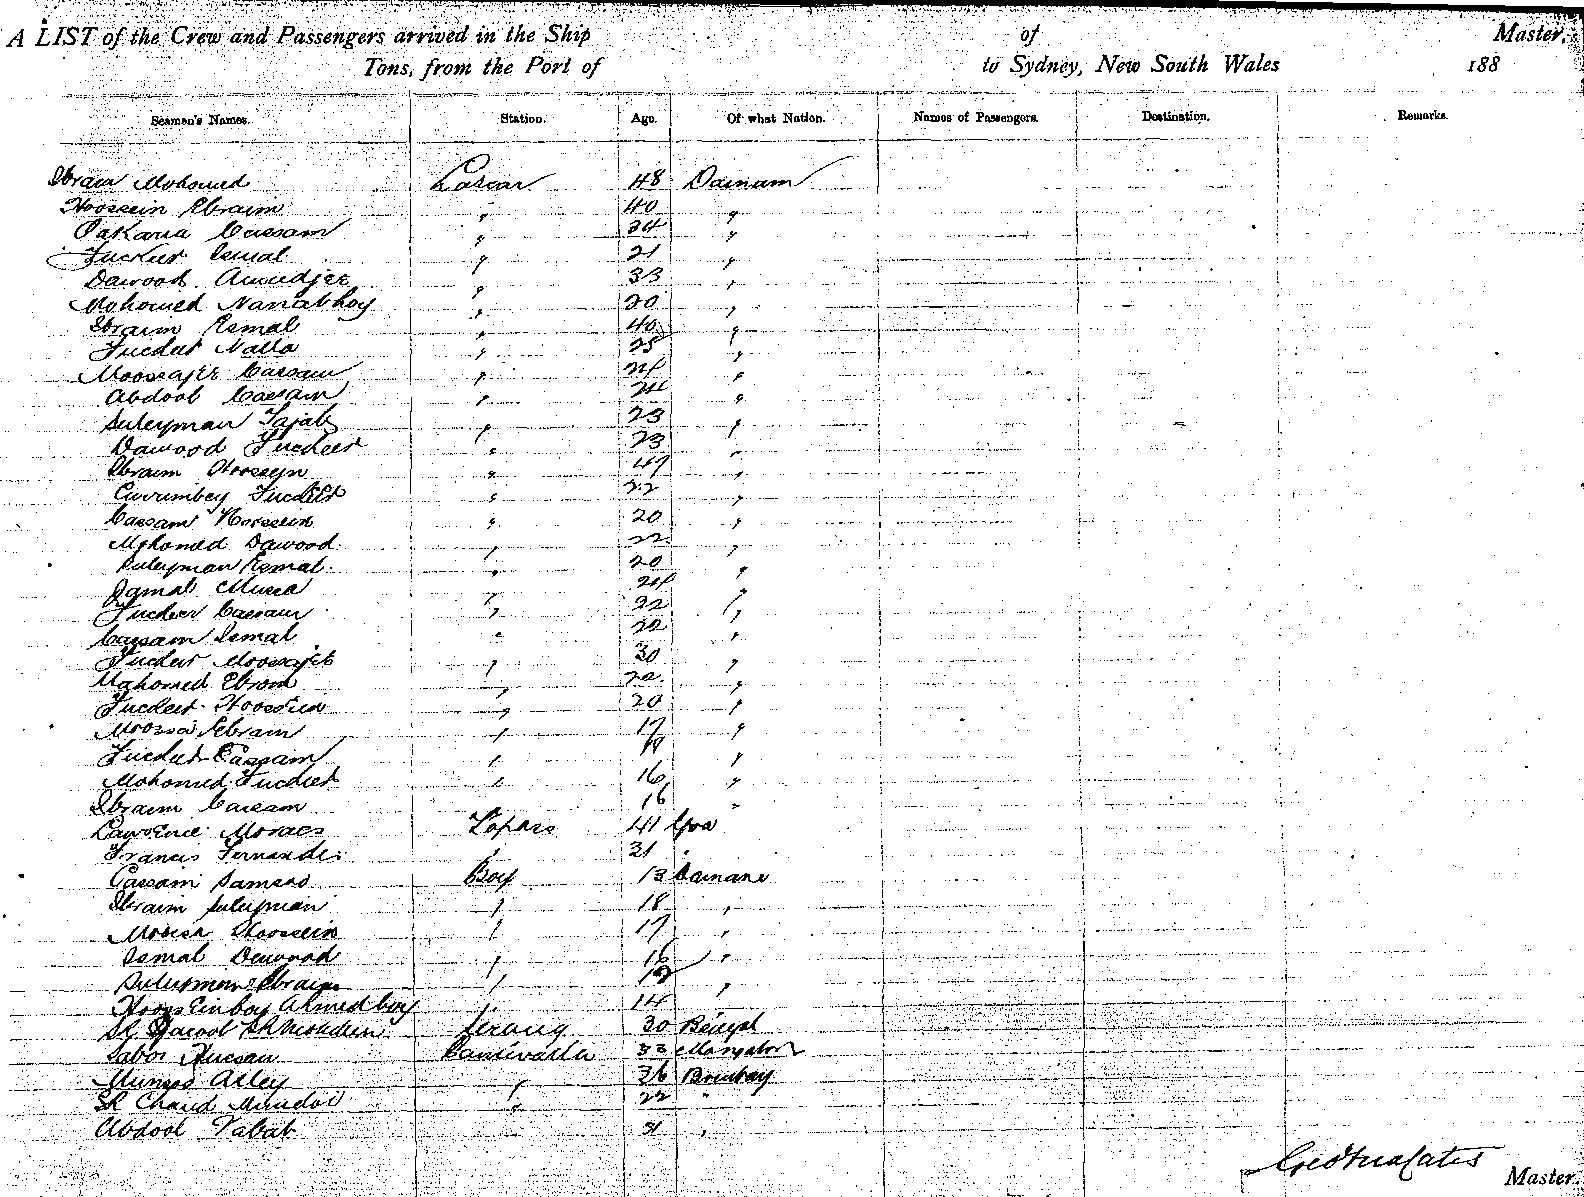 A LIST of the Crew and Passengers arrived in the Ship of Master,
Tons, from the Port of to Sydney, New South Wales 188
Seamen's Names. Station. Age. Of what Nation. Names of Passengers. Destination. Remarks.
Ibraim Mohomed Lascar 48 Damam
Hoossein Ebraim " 40 "
Cassam " 24 "
Esmal " 21 "
Dawood " 33 "
Mohomed Nanabhoy " 20 "
Ibraim Esmal " 40 "
Fuceer Nalla " 25 "
Moosajee Cassam " 24 "
Abdool Cassam " 24 "
Suleyman Rajab " 23 "
Dawood Fucheer " 23 "
Ibraim Hoosseyn " 47 "
Currimbey Fucheer " 22 "
Cassam Hoossein " 20 "
Mohomed Dawood " 22 "
Suleyman Esmal " 20 "
Jamal Mussa " 24 "
Fucheer Cassam " 22 "
Cassam Ismal " 22 "
Fucheer Moosajee " 30 "
Mahomed Ebram " 22 "
Fucheer Hoossein " 20 "
Moossa Ebram " 17 "
Fucheer Cassam " "
Mohomed Fucheer " 16 "
Ibraim Cassam 16 "
Lawrence Moraes Topass 41 Goa
Francis Fernandes " 31 "
Cassam Boy 13 Damann
Ibraim Suleyman " 18 "
Moosa Hoossein " 17 "
Ismal Dawood " 16 "
Suleman Ebraim " "
Hoosseinboy Ahmedboy " 14
Sk Yacoob Serang 30 Bengal
33 Mangalore
Alley " 36 Bombay
Sk Chand " 22 "
Abdool 31 "
Master.